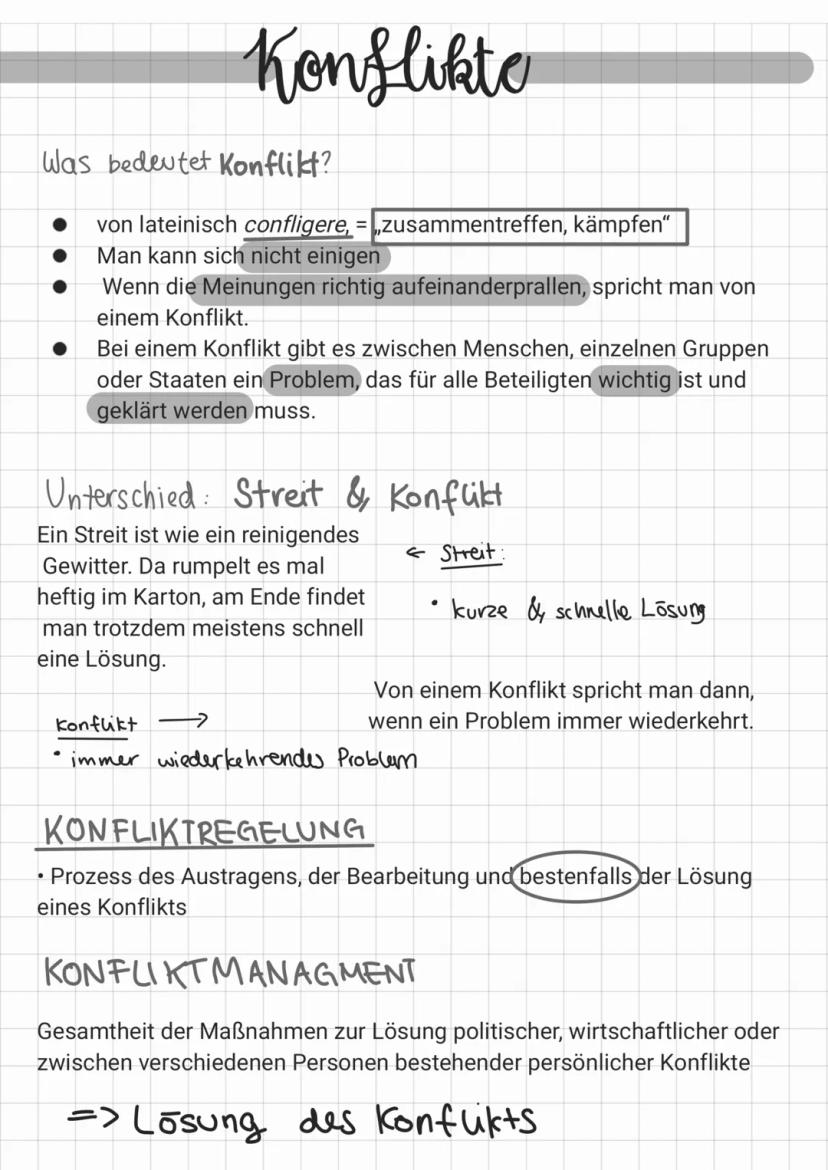 Konflikte
Was bedeutet Konflikt?
● von lateinisch configere, = „zusammentreffen, kämpfen“
● Man kann sich nicht einigen
● Wenn die Meinungen richtig aufeinanderprallen, spricht man von
einem Konflikt.
● Bei einem Konflikt gibt es zwischen Menschen, einzelnen Gruppen
oder Staaten ein Problem, das für alle Beteiligten wichtig ist und
geklärt werden muss.
Unterschied: Streit & Konflikt
Ein Streit ist wie ein reinigendes
Gewitter. Da rumpelt es mal
heftig im Karton, am Ende findet
man trotzdem meistens schnell
eine Lösung.
← Streit:
• kurze & schnelle Lösung
Von einem Konflikt spricht man dann,
wenn ein Problem immer wiederkehrt.
Konflikt →
• immer wiederkehrendes Problem
KONFLIKTREGELUNG
• Prozess des Austragens, der Bearbeitung und bestenfalls der Lösung
eines Konflikts
KONFLIKTMANAGMENT
Gesamtheit der Maßnahmen zur Lösung politischer, wirtschaftlicher oder
zwischen verschiedenen Personen bestehender persönlicher Konflikte
=> Lösung des Konflikts